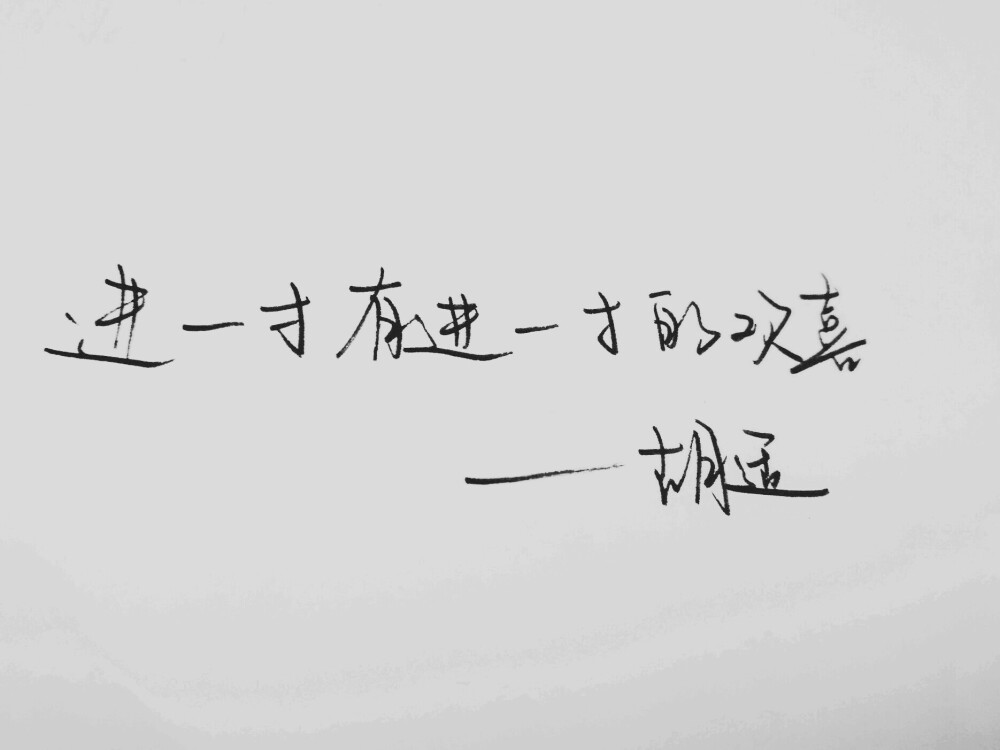 进一寸有进一寸的欢喜
——胡适